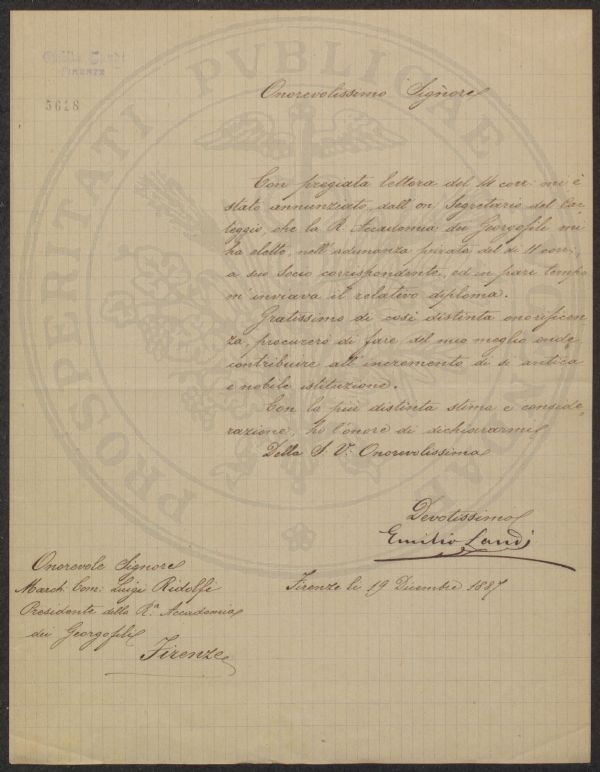 Emilio Landi
FIRENZE
5618
PROSPERITATI PVBLICAE
Onorevolissimo Signore
Con pregiata lettera del 14 corr: mi è
stato annunziato, dall' on Segretario del Car
teggio, che la R. Accademia dei Georgofili mi
ha eletto, nell'adunanza privata del dì 11 corr:,
a suo Socio corrispondente, ed in pari tempo
m'inviava il relativo diploma.
Gratissimo di così distinta onorificen
za, procurerò di fare del mio meglio onde
contribuire all'incremento di sì antica
e nobile istituzione.
Con la più distinta stima e conside,
razione, ho l'onore di dichiararmi
Della S. V: Onorevolissima
Devotissimo
Emilio Landi
Onorevole Signore
March: Com: Luigi Ridolfi
Presidente della R.a Accademia
dei Georgofili
Firenze
Firenze li 19 Dicembre 1887